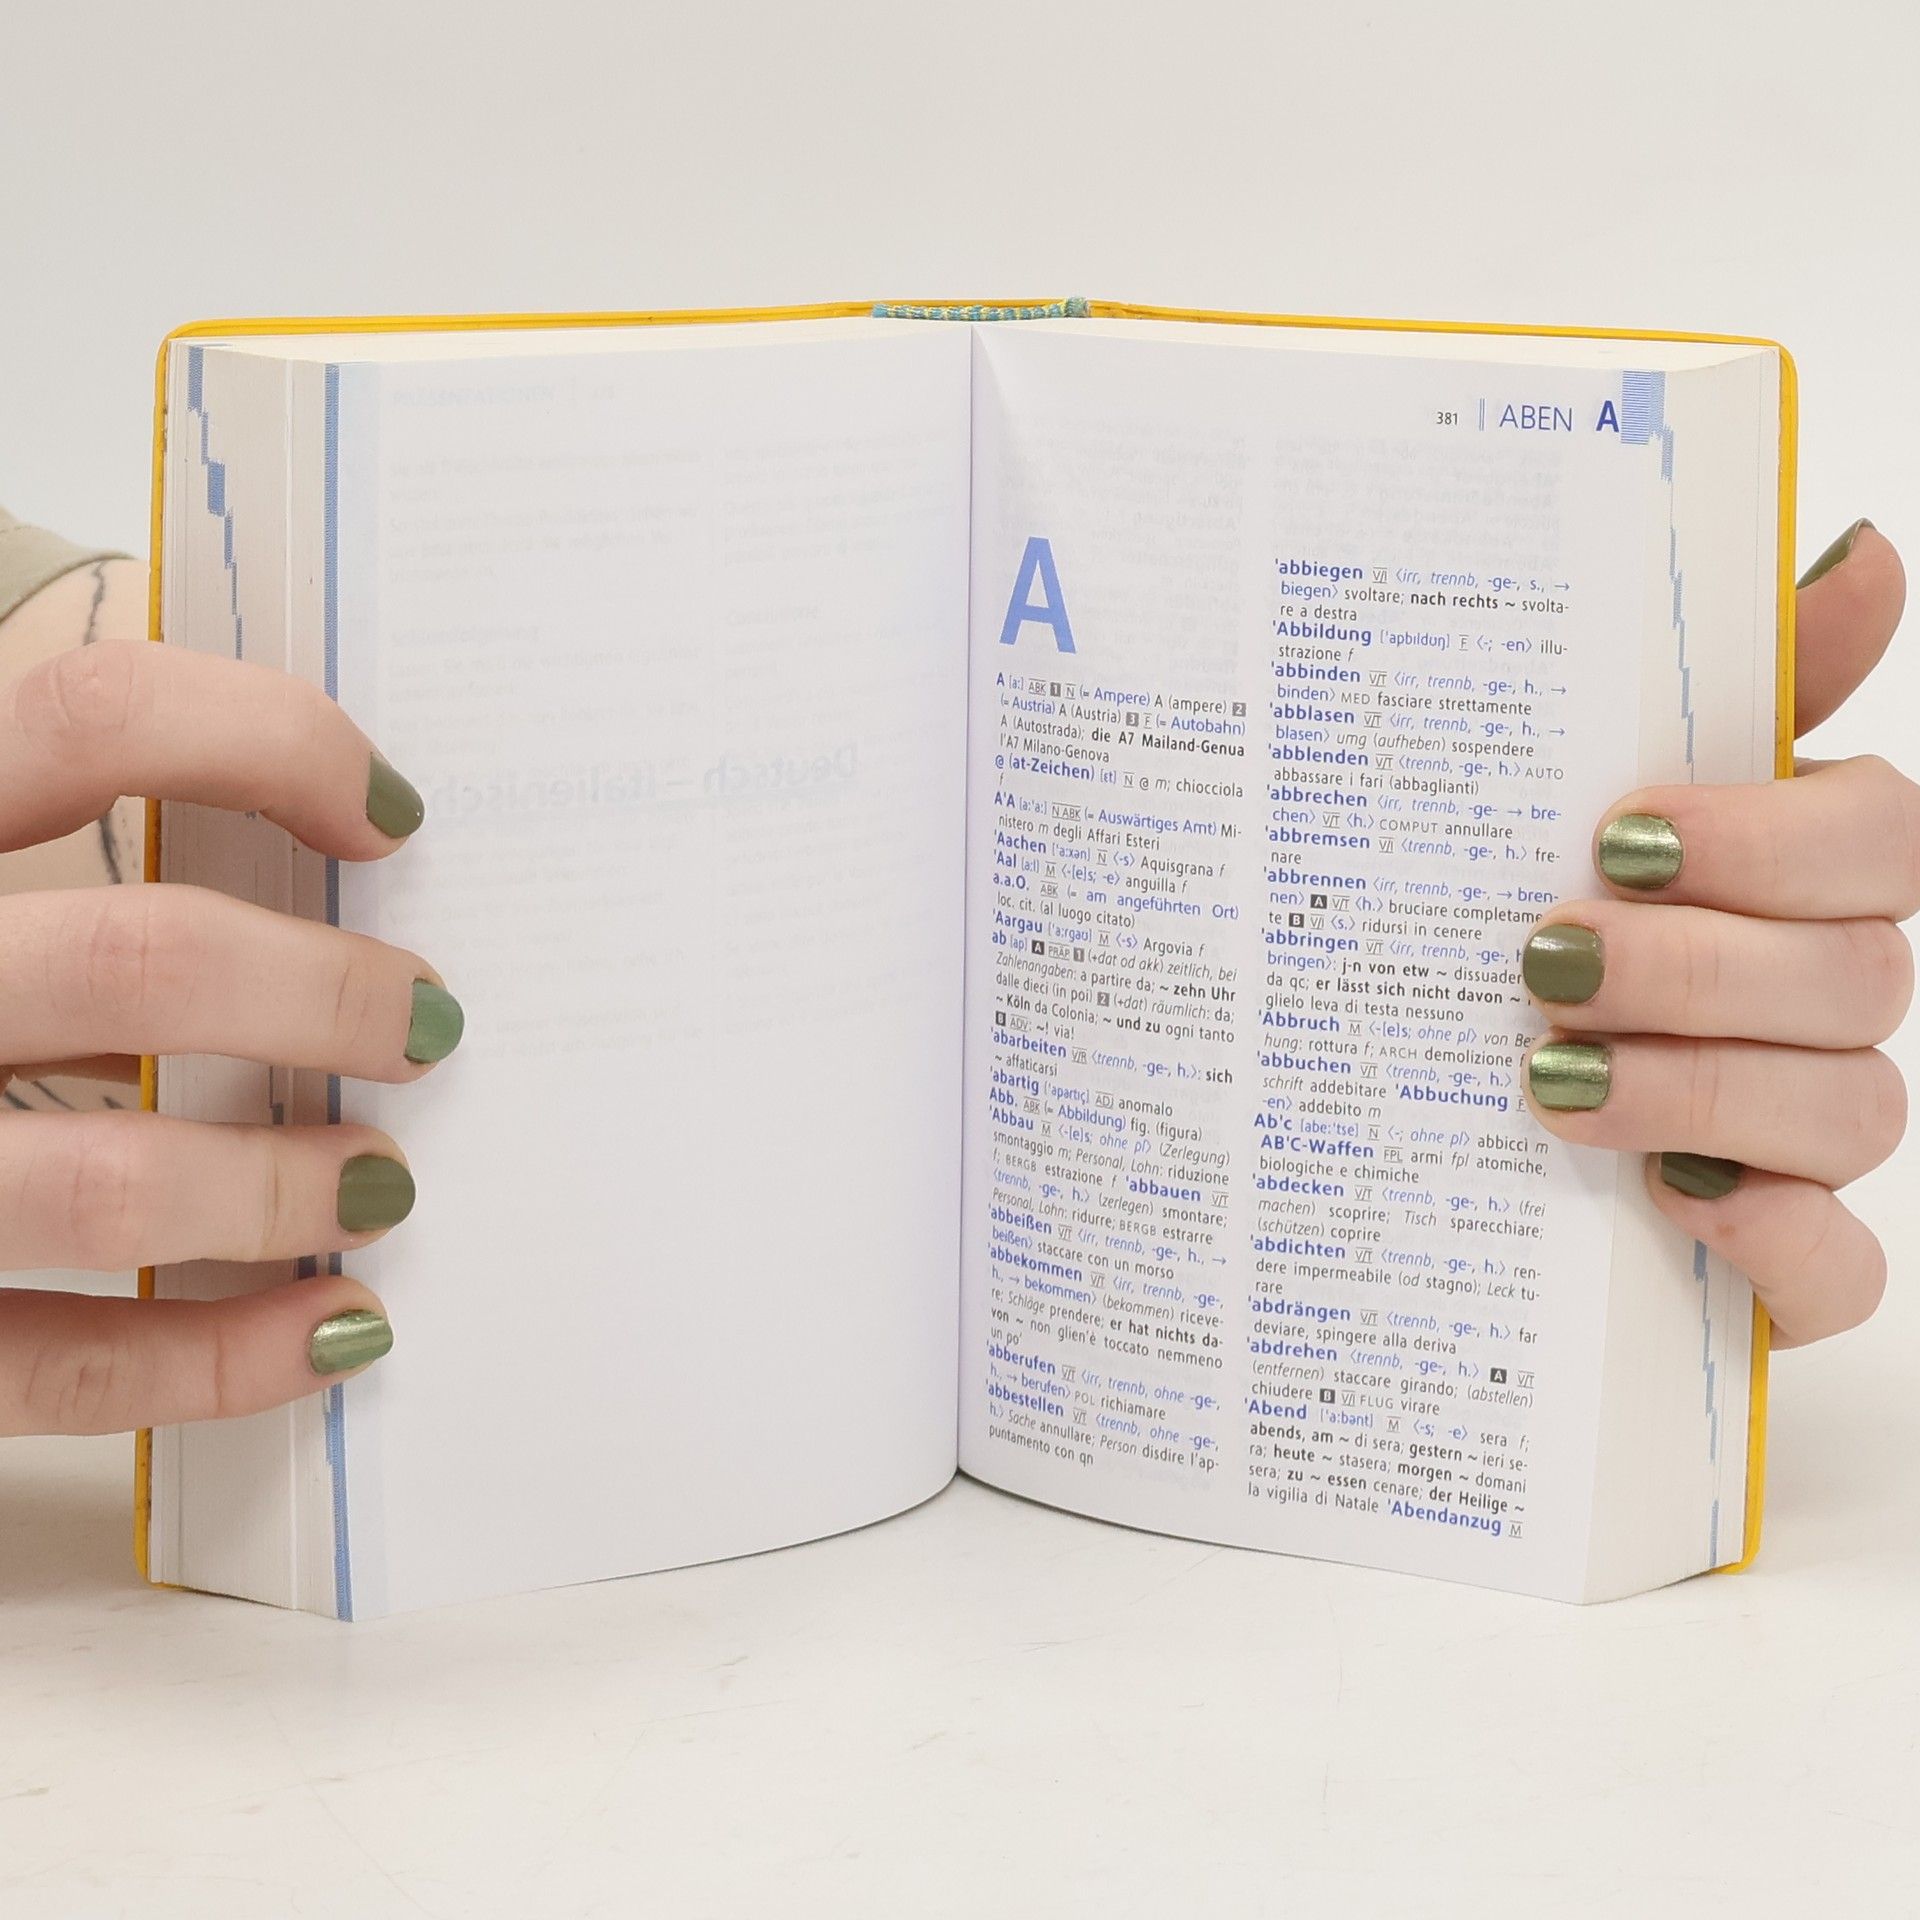 381 ABEN A
A
A [a:] ABK 1 N (= Ampere) A (ampere) 2
(= Austria) A (Austria) 3 F (= Autobahn)
A (Autostrada); die A7 Mailand-Genua
l'A7 Milano-Genova
@ (at-Zeichen) [ɛt] N @ m; chiocciola
f
A'A [a:'a:] N ABK (= Auswärtiges Amt) Mi-
nistero m degli Affari Esteri
'Aachen ['a:xən] N ⟨-s⟩ Aquisgrana f
'Aal [a:l] M ⟨-[e]s; -e⟩ anguilla f
a.a.O. ABK (= am angeführten Ort)
loc. cit. (al luogo citato)
'Aargau ['a:rgaʊ] M ⟨-s⟩ Argovia f
ab [ap] A PRÄP 1 (+dat od akk) zeitlich, bei
Zahlenangaben: a partire da; ~ zehn Uhr
dalle dieci (in poi) 2 (+dat) räumlich: da;
~ Köln da Colonia; ~ und zu ogni tanto
B ADV: ~! via!
'abarbeiten V/R ⟨trennb, -ge-, h.⟩: sich
~ affaticarsi
'abartig ['apartıç] ADJ anomalo
Abb. ABK (= Abbildung) fig. (figura)
'Abbau M ⟨-[e]s; ohne pl⟩ (Zerlegung)
smontaggio m; Personal, Lohn: riduzione
f; BERGB estrazione f 'abbauen V/T
⟨trennb, -ge-, h.⟩ (zerlegen) smontare;
Personal, Lohn: ridurre; BERGB estrarre
'abbeißen V/T ⟨irr, trennb, -ge-, h., →
beißen⟩ staccare con un morso
'abbekommen V/T ⟨irr, trennb, -ge-,
h., → bekommen⟩ (bekommen) riceve-
re; Schläge prendere; er hat nichts da-
von ~ non glien'è toccato nemmeno
un po'
'abberufen V/T ⟨irr, trennb, ohne -ge-,
h., → berufen⟩ POL richiamare
'abbestellen V/T ⟨trennb, ohne -ge-,
h.⟩ Sache annullare; Person disdire l'ap-
puntamento con qn
'abbiegen V/I ⟨irr, trennb, -ge-, s., →
biegen⟩ svoltare; nach rechts ~ svolta-
re a destra
'Abbildung ['apbıldʊŋ] F ⟨-; -en⟩ illu-
strazione f
'abbinden V/T ⟨irr, trennb, -ge-, h., →
binden⟩ MED fasciare strettamente
'abblasen V/T ⟨irr, trennb, -ge-, h., →
blasen⟩ umg (aufheben) sospendere
'abblenden V/T ⟨trennb, -ge-, h.⟩ AUTO
abbassare i fari (abbaglianti)
'abbrechen ⟨irr, trennb, -ge- → bre-
chen⟩ V/T ⟨h.⟩ COMPUT annullare
'abbremsen V/I ⟨trennb, -ge-, h.⟩ fre-
nare
'abbrennen ⟨irr, trennb, -ge-, → bren-
nen⟩ A V/T ⟨h.⟩ bruciare completame
te B V/I ⟨s.⟩ ridursi in cenere
'abbringen V/T ⟨irr, trennb, -ge-,
bringen⟩: j-n von etw ~ dissuader
da qc; er lässt sich nicht davon ~
glielo leva di testa nessuno
'Abbruch M ⟨-[e]s; ohne pl⟩ von Be-
hung: rottura f; ARCH demolizione f
'abbuchen V/T ⟨trennb, -ge-, h.⟩
schrift addebitare 'Abbuchung F
-en⟩ addebito m
Ab'c [abe:'tse] N ⟨-; ohne pl⟩ abbiccì m
AB'C-Waffen FPL armi fpl atomiche,
biologiche e chimiche
'abdecken V/T ⟨trennb, -ge-, h.⟩ (frei
machen) scoprire; Tisch sparecchiare;
(schützen) coprire
'abdichten V/T ⟨trennb, -ge-, h.⟩ ren-
dere impermeabile (od stagno); Leck tu-
rare
'abdrängen V/T ⟨trennb, -ge-, h.⟩ far
deviare, spingere alla deriva
'abdrehen ⟨trennb, -ge-, h.⟩ A V/T
(entfernen) staccare girando; (abstellen)
chiudere B V/I FLUG virare
'Abend ['a:bənt] M ⟨-s; -e⟩ sera f;
abends, am ~ di sera; gestern ~ ieri se-
ra; heute ~ stasera; morgen ~ domani
sera; zu ~ essen cenare; der Heilige ~
la vigilia di Natale 'Abendanzug M